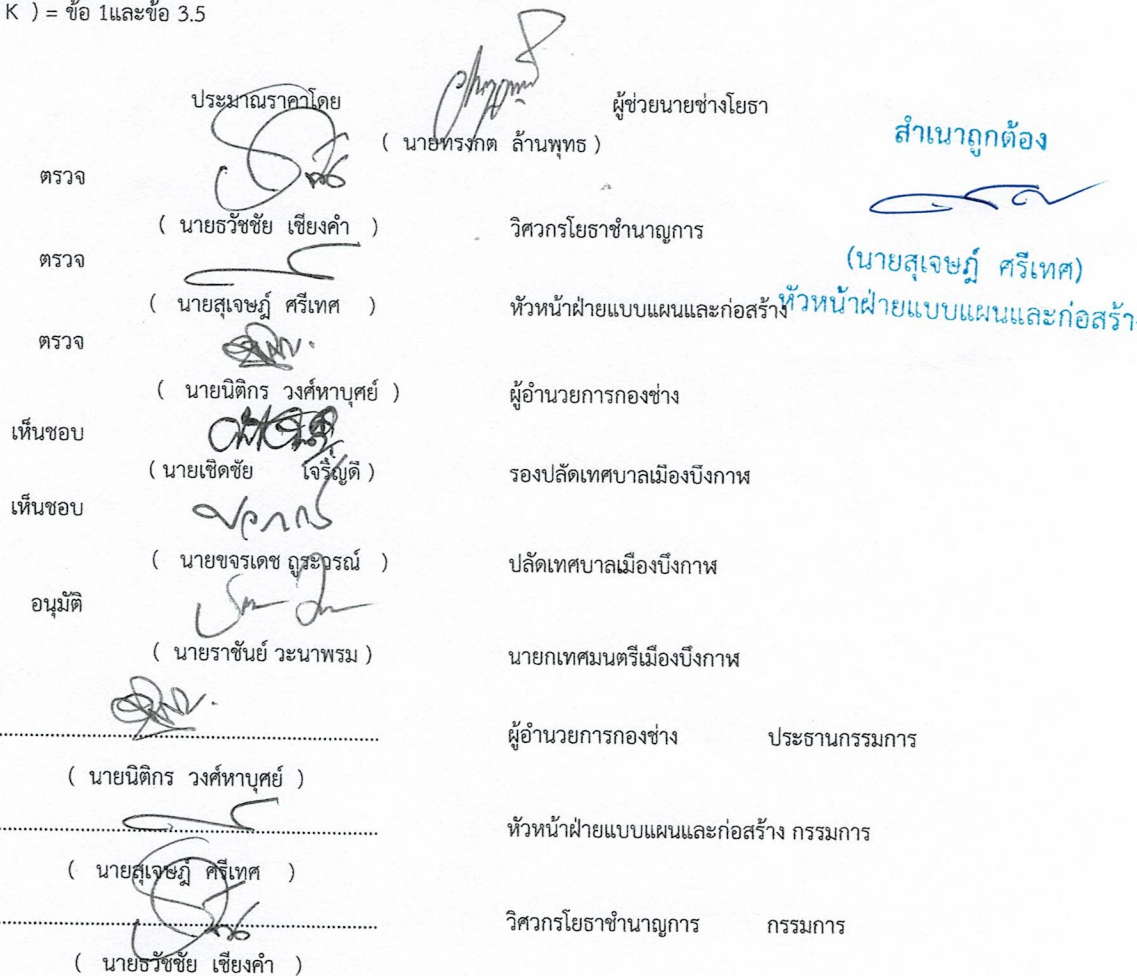 K ) = ข้อ 1และข้อ 3.5
ประมาณราคาโดย ผู้ช่วยนายช่างโยธา
( นายทรงกต ล้านพุทธ )
สำเนาถูกต้อง
ตรวจ
( นายธวัชชัย เชียงคำ ) วิศวกรโยธาชำนาญการ
ตรวจ
(นายสุเจษฎ์ ศรีเทศ)
( นายสุเจษฎ์ ศรีเทศ ) หัวหน้าฝ่ายแบบแผนและก่อสร้าง
หัวหน้าฝ่ายแบบแผนและก่อสร้าง
ตรวจ
( นายนิติกร วงศ์หาบุศย์ ) ผู้อำนวยการกองช่าง
เห็นชอบ
( นายเชิดชัย ใจริญดี ) รองปลัดเทศบาลเมืองบึงกาฬ
เห็นชอบ
( นายขจรเดช ถูระวรณ์ ) ปลัดเทศบาลเมืองบึงกาฬ
อนุมัติ
( นายราชันย์ วะนาพรม ) นายกเทศมนตรีเมืองบึงกาฬ
ผู้อำนวยการกองช่าง ประธานกรรมการ
( นายนิติกร วงศ์หาบุศย์ )
หัวหน้าฝ่ายแบบแผนและก่อสร้าง กรรมการ
( นายสุเจษฎ์ ศรีเทศ )
วิศวกรโยธาชำนาญการ กรรมการ
( นายธวัชชัย เชียงคำ )